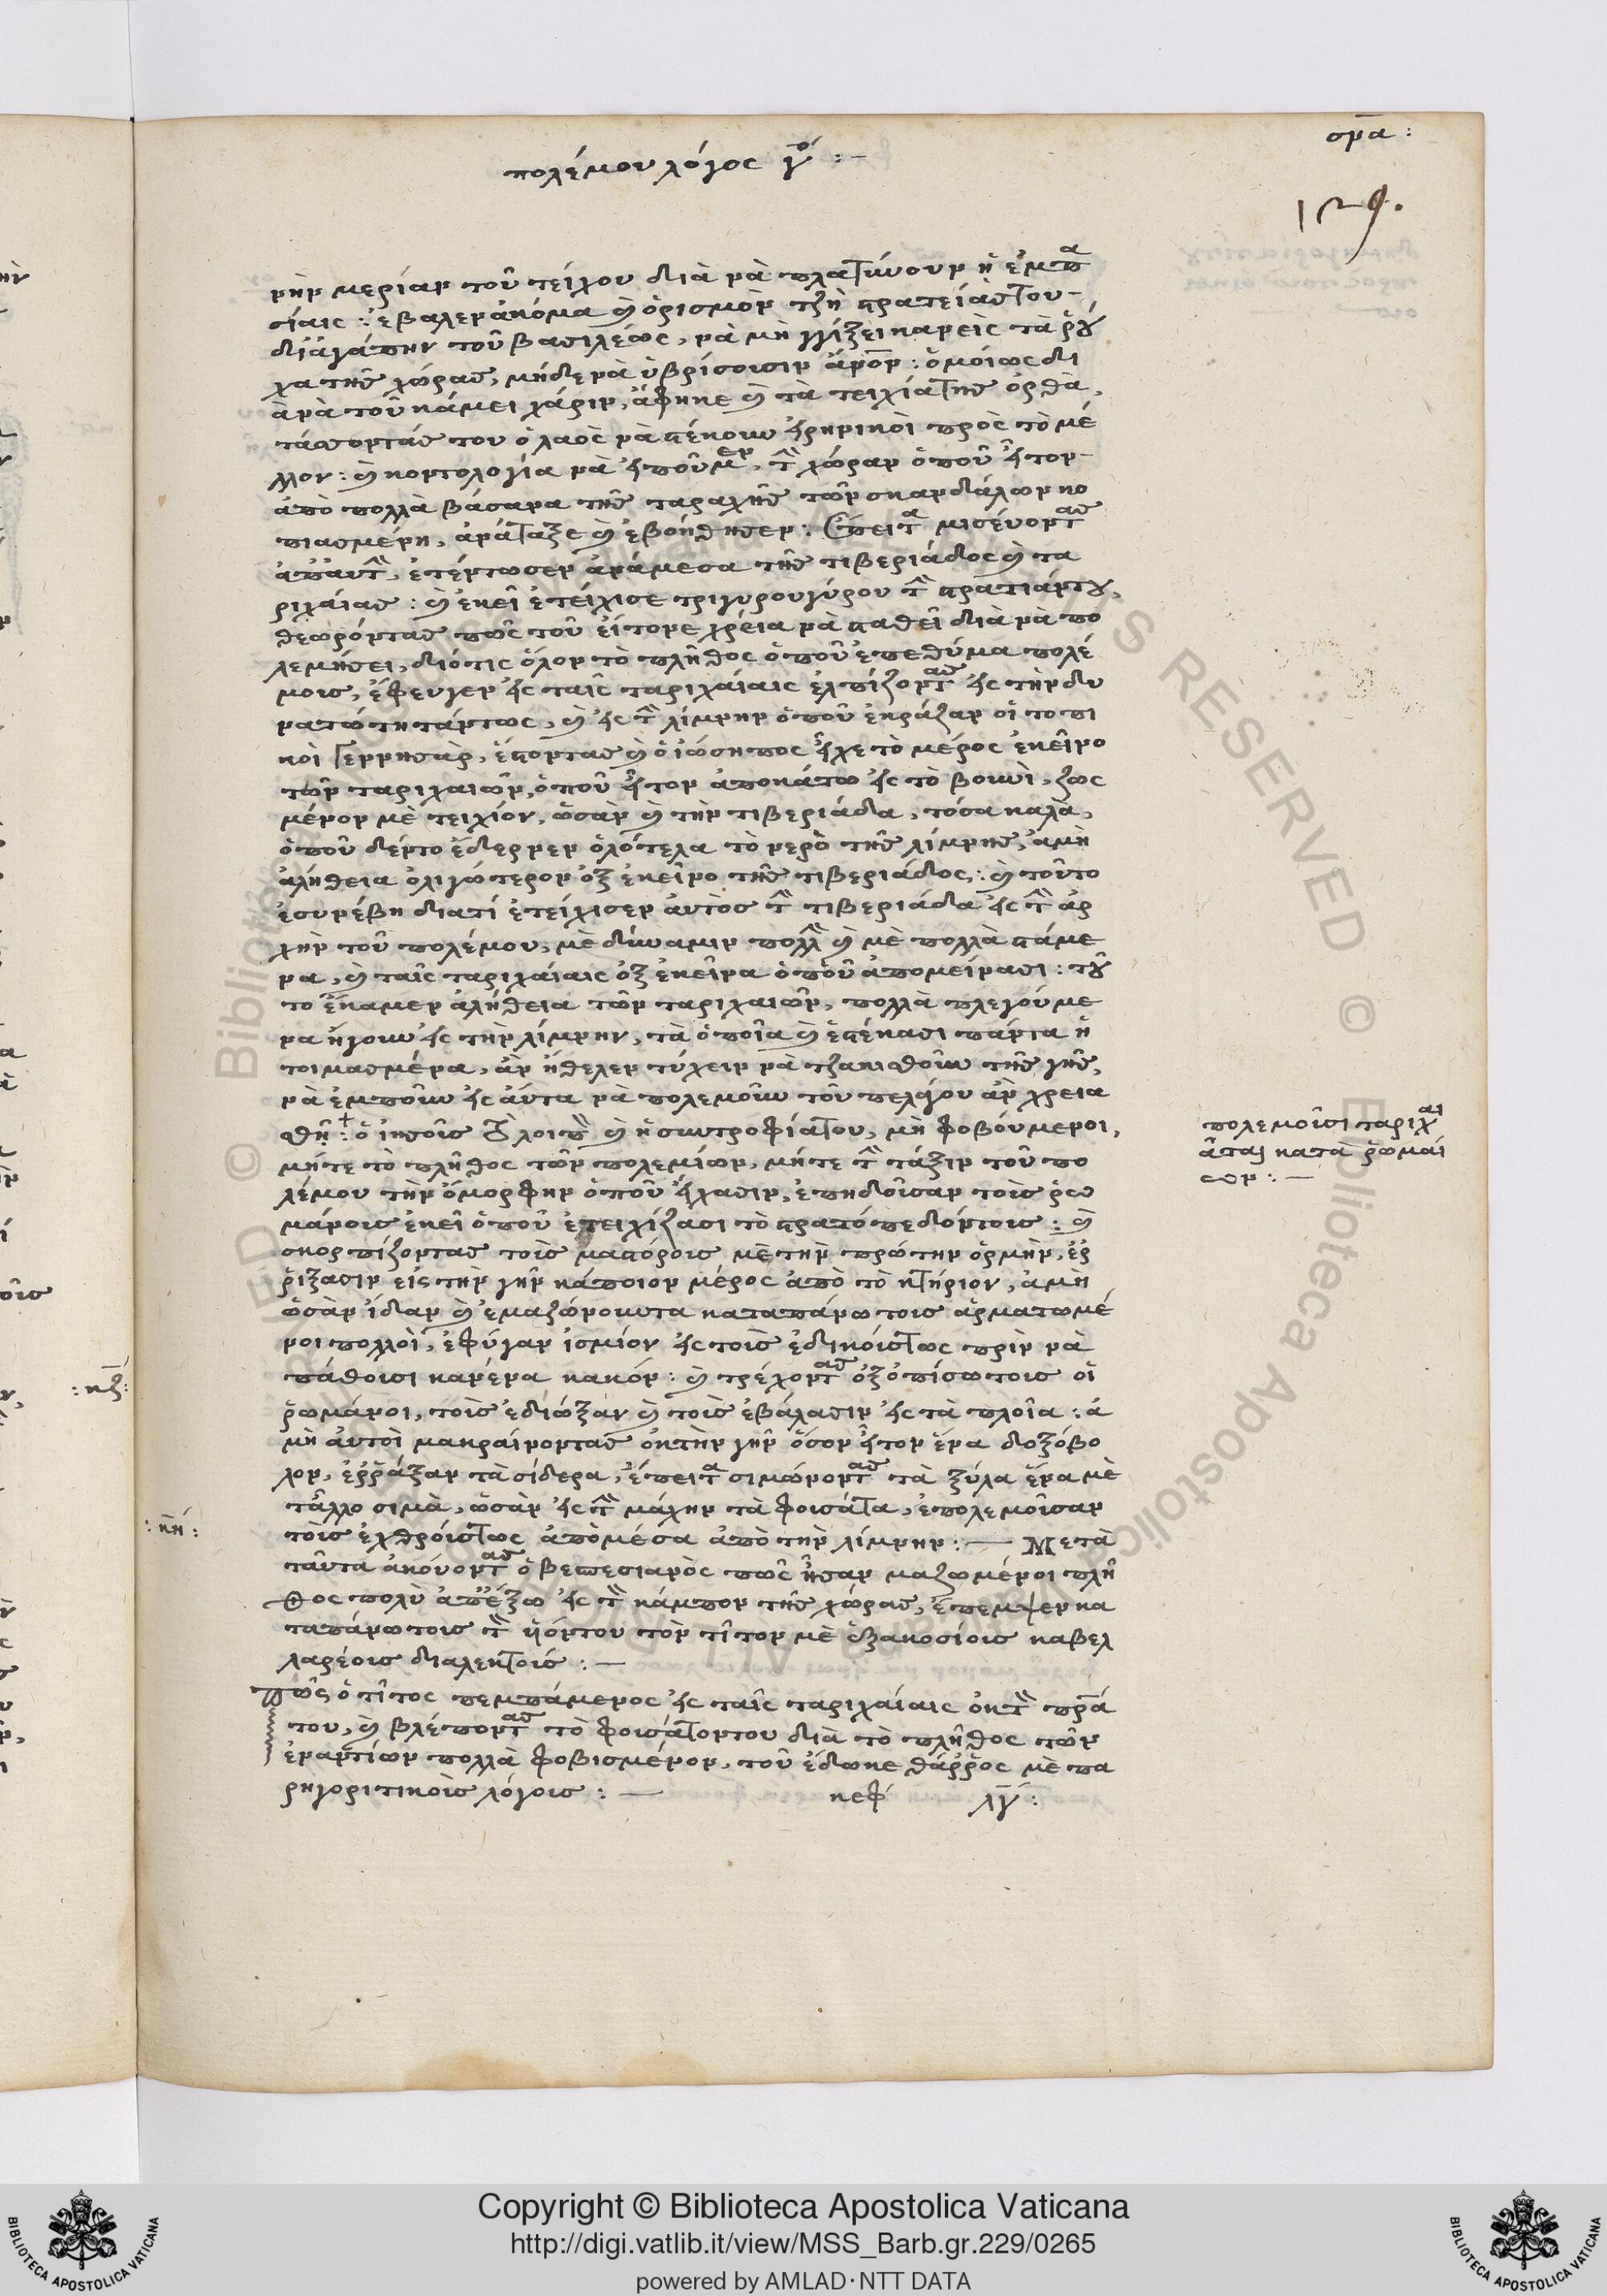 σνα:
πολέμου λόγος γος : –
129.
νὴν μερίαν τοῦ τείχου διὰ νὰ πλατύνουν ἡ ἐμπα
σίαις : ἔβαλεν ἀκόμα καὶ ὁρισμὸν τζη στρατείας του
δι' ἀγάπην τοῦ βασιλέως, νὰ μὴ γγίξει κανεὶς τὰ ῥοῦ
χα τῆς χώρας, μήδε νὰ ὑβρίσουσιν ἄνον : ὁμοίως δι
ὰ νὰ τοῦ κάμει χάριν, ἄφηκε καὶ τὰ τειχία της ὀρθὰ,
τάσσοντάς του ὁ λαὸς νὰ στέκουν εἰρηνικοὶ πρὸς τὸ μέ
λλον : καὶ κοντολογία νὰ εἰποῦμεν, τὴν χώραν ὁποῦ ἦτον
ἀπὸ πολλὰ βάσανα τῆς ταραχῆς τῶν σκανδάλων κο
πιασμένη, ἀνάταξε καὶ ἐβοήθησεν : Ἔπειτα μισεύοντας
ἀπ' αὐτὴν, ἐτέντωσεν ἀνάμεσα τῆς τιβεριάδος καὶ τα
ριχαίας : καὶ ἐκεῖ ἐτείχισε τριγυρουγύρου τὴν στρατιάν του,
θεωρόντας πῶς τοῦ εἴτονε χρεία νὰ σταθεῖ διὰ νὰ πο
λεμήσει, διότις ὅλον τὸ πλῆθος ὁποῦ ἐπεθύμα πολέ
μους, ἔφευγεν εἰς ταῖς ταριχαίαις ἐλπίζοντας εἰς τὴν δυ
νατώτητάντως, καὶ εἰς τὴν λίμνην ὁποῦ ἐκράζαν οἱ τοπι
κοὶ Γεννησὰρ, ἔστοντας καὶ ὁ ἰώσηπος εἶχε τὸ μέρος ἐκεῖνο
τῶν ταριχαιῶν, ὁποῦ ἦτον ἀποκάτω εἰς τὸ βουνὶ, ζως
μένον μὲ τειχίον, ὡσὰν καὶ τὴν τιβεριάδα, τόσα καλὰ,
ὁποῦ δέντο ἔδερνεν ὁλότελα τὸ νερὸ τῆς λίμνης, ἀμὴ
ἀλήθεια ὀλιγώτερον ὀξ ἐκεῖνο τῆς τιβεριάδος : καὶ τοῦτο
ἐσυνέβη διατί ἐτείχισεν αὐτὸς τὴν τιβεριάδα εἰς τὴν ἀρ
χὴν τοῦ πολέμου, μὲ δύναμιν πολλὴν καὶ μὲ πολλὰ στάμε
να, καὶ ταῖς ταριχαίαις ὀξ ἐκεῖνα ὁποῦ ἀπομείνασι : τοῦ
το ἔκαμεν ἀλήθεια τῶν ταριχαιῶν, πολλὰ πλεγούμε
να ἤγουν εἰς τὴν λίμνην, τὰ ὁποῖα καὶ ἐστέκασι πάντα ἡ
τοιμασμένα, ἂν ἤθελεν τύχειν νὰ τζακισθοῦν τῆς γῆς,
νὰ ἐμποῦν εἰς αὐτα νὰ πολεμοῦν τοῦ πελάγου ἂν χρεια
σθῆ : ὁ ἰησοῦς δὲ λοιπὸν καὶ ἡ συντροφία του, μὴ φοβούμενοι,
μήτε τὸ πλῆθος τῶν πολεμίων, μήτε τὴν τάξιν τοῦ πο
λέμου τὴν ὄμορφην ὁποῦ εἴχασιν, ἐπηδοῦσαν τοὺς ῥω
μάνους ἐκεῖ ὁποῦ ἐτειχίζασι τὸ στρατόπεδόντους : καὶ
σκορπίζοντας τοὺς μαστόρους μὲ τὴν πρώτην ὁρμὴν, ἐρ
ῥίξασιν εἰς τὴν γῆν κάποιον μέρος ἀπὸ τὸ κτήριον, ἀμὴ
ὡσὰν ἴδαν καὶ ἐμαζώνουντα καταπάνω τους ἁρματωμέ
νοι πολλοὶ, ἐφύγαν ἰσμίον εἰς τοὺς ἐδικούς τως πρὶν νὰ
πάθουσι κανένα κακόν : καὶ τρέχοντας ὀξ ὀπίσω τους οἱ
ῥωμάνοι, τοὺς ἐδιώξαν καὶ τοὺς ἐβάλασιν εἰς τὰ πλοῖα : ἀ
μὴ αὐτοὶ μακραίνοντας ὀκ τὴν γῆν ὅσον ἦτον ἕνα δοξόβο
λον, ἐῤῥάξαν τὰ σίδερα, ἔπειτα σιμώνοντας τὰ ξύλα ἕνα μὲ
τἄλλο σιμὰ, ὡσὰν εἰς τὴν μάχην τὰ φουσάτα, ἐπολεμοῦσαν
τοὺς ἐχθρούς τως ἀπὸ μέσα ἀπὸ τὴν λίμνην : — Μετὰ
ταῦτα ἀκούοντας ὁ βεσπεσιανὸς πῶς ἦσαν μαζωμένοι πλῆ
θος πολὺ ἀπέξω εἰς τὴν κάμπον τῆς χώρας, ἔπεμψεν κα
ταπάνω τους τὸν ὑιόντου τὸν τῖτον μὲ ἑξακοσίους καβελ
λαρέους διαλεκτοὺς : —
Πῶς ὁ τῖτος πεμπάμενος εἰς ταῖς ταριχαίαις ὀκ τὸν πρ̅ά
του, καὶ βλέποντας τὸ φουσάτοντου διὰ τὸ πλῆθος τῶν
ἐναντίων πολλὰ φοβισμένον, τοῦ ἔδωκε θάῤῥος μὲ πα
ρηγοριτικοὺς λόγους : — κεφ λγ :
πολεμοῦσι ταριχαι
ᾶται κατὰ ῥωμαί
ων : —
: κζ :
: κη :
Copyright © Biblioteca Apostolica Vaticana
http://digi.vatlib.it/view/MSS_Barb.gr.229/0265
powered by AMLAD·NTT DATA
BIBLIOTECA APOSTOLICA VATICANA
BIBLIOTECA APOSTOLICA VATICANA